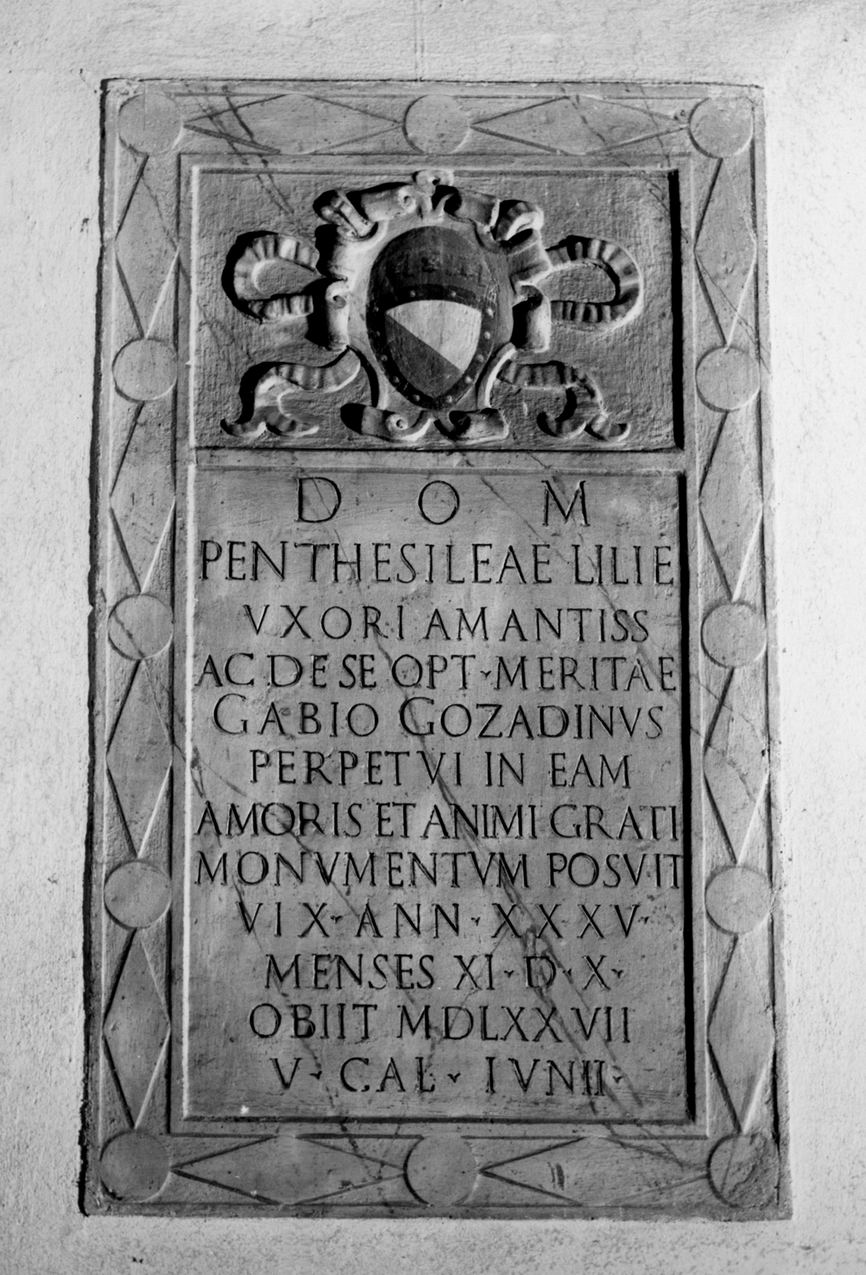 D O M
PENTHESILEAE LILIE
VXORI AMANTISS
AC DE SE OPT·MERITAE
GABIO GOZADINVS
PERPETVI IN EAM
AMORIS ET ANIMI GRATI
MONVMENTVM POSVIT
VIX·ANN·XXXV·
MENSES XI·D·X·
OBIIT MDLXXVII
V·CAL·IVNII·